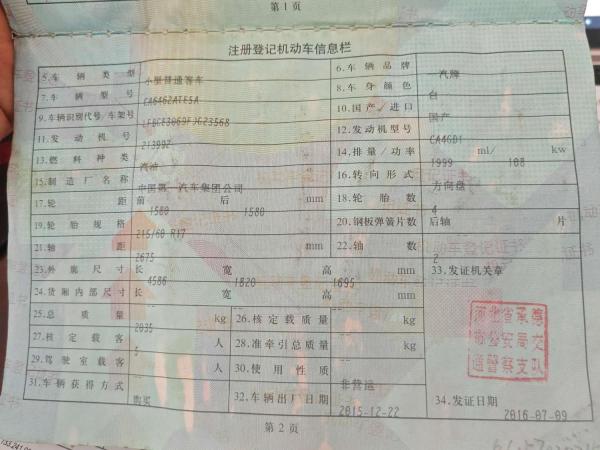 第1页
注册登记机动车信息栏
5.车辆类型 小型普通客车 6.车辆品牌 一汽牌
7.车辆型号 CA6462ATE5A 8.车身颜色 白
9.车辆识别代号/车架号 10.国产✓进口 国产
11.发动机号 213992 12.发动机型号 CA4GD1
13.燃料种类 汽油 14.排量/功率 1999 ml/ 108 kw
15.制造厂名称 中国第一汽车集团公司 16.转向形式 方向盘
17.轮距 前 1580 后 1580 mm 18.轮胎数 4
19.轮胎规格 215/60 R17 20.钢板弹簧片数 后轴 片
21.轴距 2675 mm 22.轴数 2
23.外廓尺寸 长 4586 宽 1820 高 1695 mm 33.发证机关章
24.货厢内部尺寸 长 宽 高 mm
25.总质量 2035 kg 26.核定载质量 kg
27.核定载客 5 人 28.准牵引总质量 kg
29.驾驶室载客 人 30.使用性质 非营运
31.车辆获得方式 购买 32.车辆出厂日期 2015-12-22 34.发证日期 2016-07-09
河北省承德
市公安局交
通警察支队
第2页